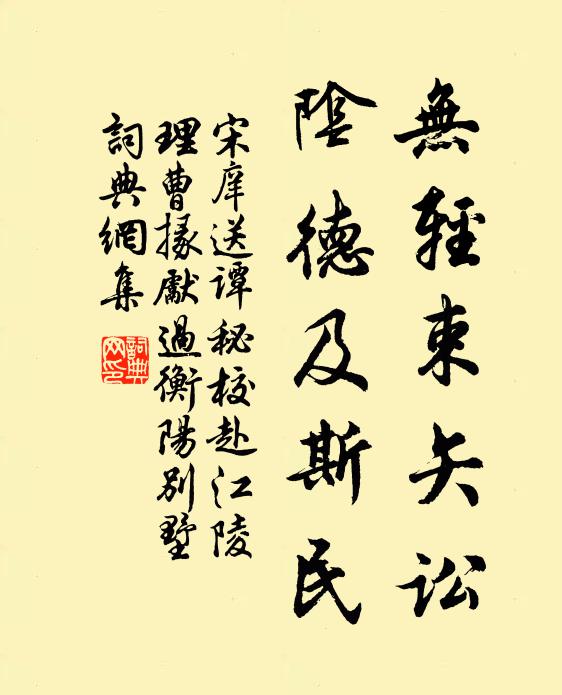 無輕束矢訟
陰德及斯民
宋庠送譚秘校赴江陵
理曹掾厭過衡陽別墅
詞典網集
詞典
网印